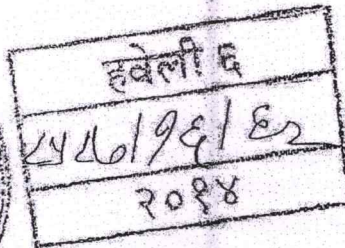 हवेली ६
८५८७/१६/६२
२०१४